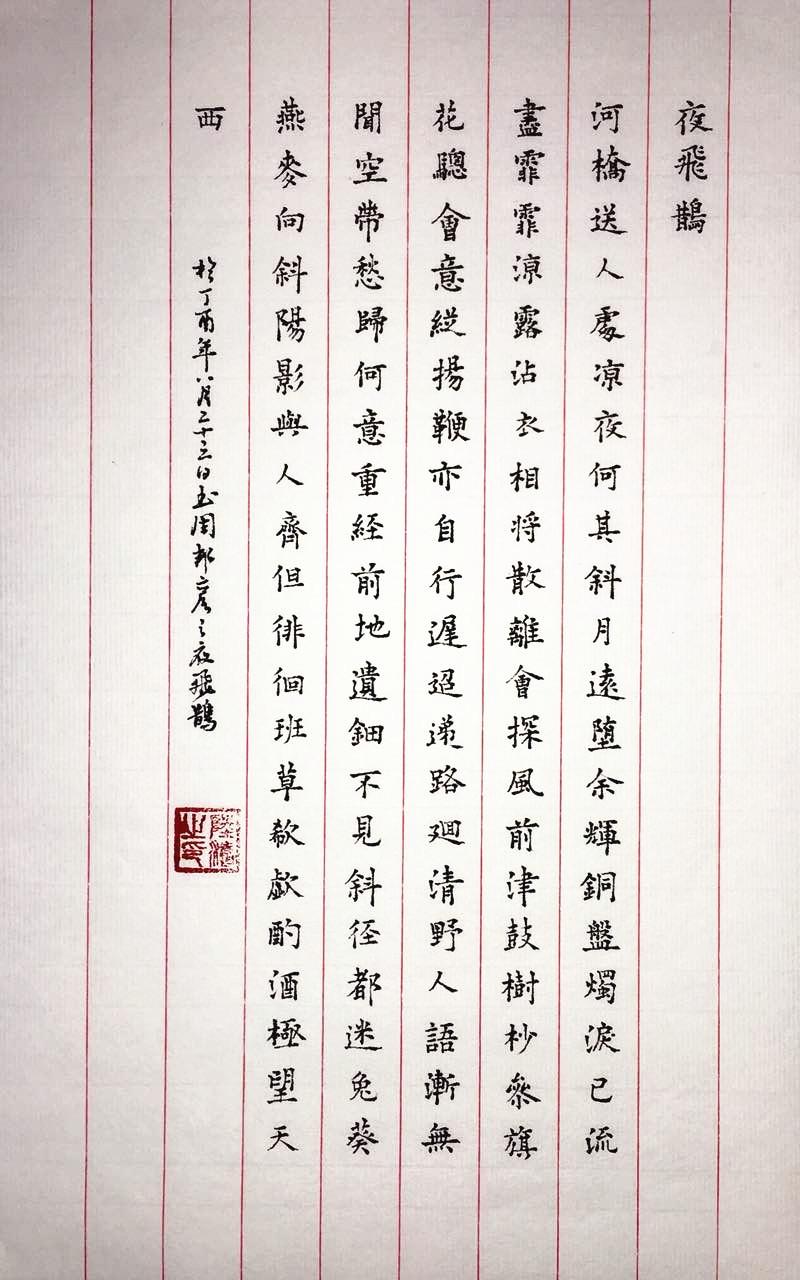 夜飛鵲
河橋送人處凉夜何其斜月遠墮余輝銅盤燭淚已流
盡霏霏涼露沾衣相將散離會探風前津鼓樹杪參旗
花驄會意縱揚鞭亦自行遲迢递路廻清野人語漸無
聞空帶愁歸何意重経前地遺鈿不見斜径都迷兔葵
燕麥向斜陽影與人齊但徘徊班草欷歔酌酒極望天
西
於丁酉年八月二十三日書周邦彥之夜飛鵲
之印